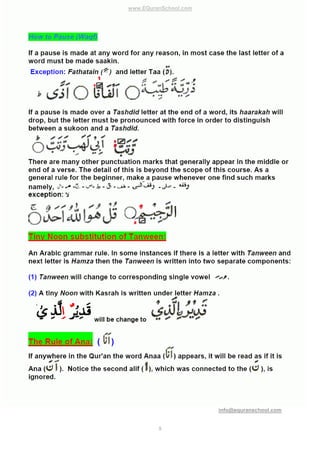 www.EQuranSchool.com
How to Pause (Waqf)
If a pause is made at any word for any reason, in most case the last letter of a
word must be made saakin.
Exception: Fathatain ( ً ) and letter Taa (ة).
If a pause is made over a Tashdid letter at the end of a word, its haarakah will
drop, but the letter must be pronounced with force in order to distinguish
between a sukoon and a Tashdid.
There are many other punctuation marks that generally appear in the middle or
end of a verse. The detail of this is beyond the scope of this course. As a
general rule for the beginner, make a pause whenever one find such marks
namely,
exception: لا
الرَّحِيْمِ قُلْ هُوَ اللّٰهُ اَحَدٌ
Tiny Noon substitution of Tanween:
An Arabic grammar rule. In some instances if there is a letter with Tanween and
next letter is Hamza then the Tanween is written into two separate components:
(1) Tanween will change to corresponding single vowel
(2) A tiny Noon with Kasrah is written under letter Hamza .
will be change to
The Rule of Ana: ( اَنَا )
If anywhere in the Qur'an the word Anaa ( اَنَا ) appears, it will be read as if it is
Ana ( اَنَ ). Notice the second alif ( ا ), which was connected to the ( نَ ), is
ignored.
info@equranschool.com